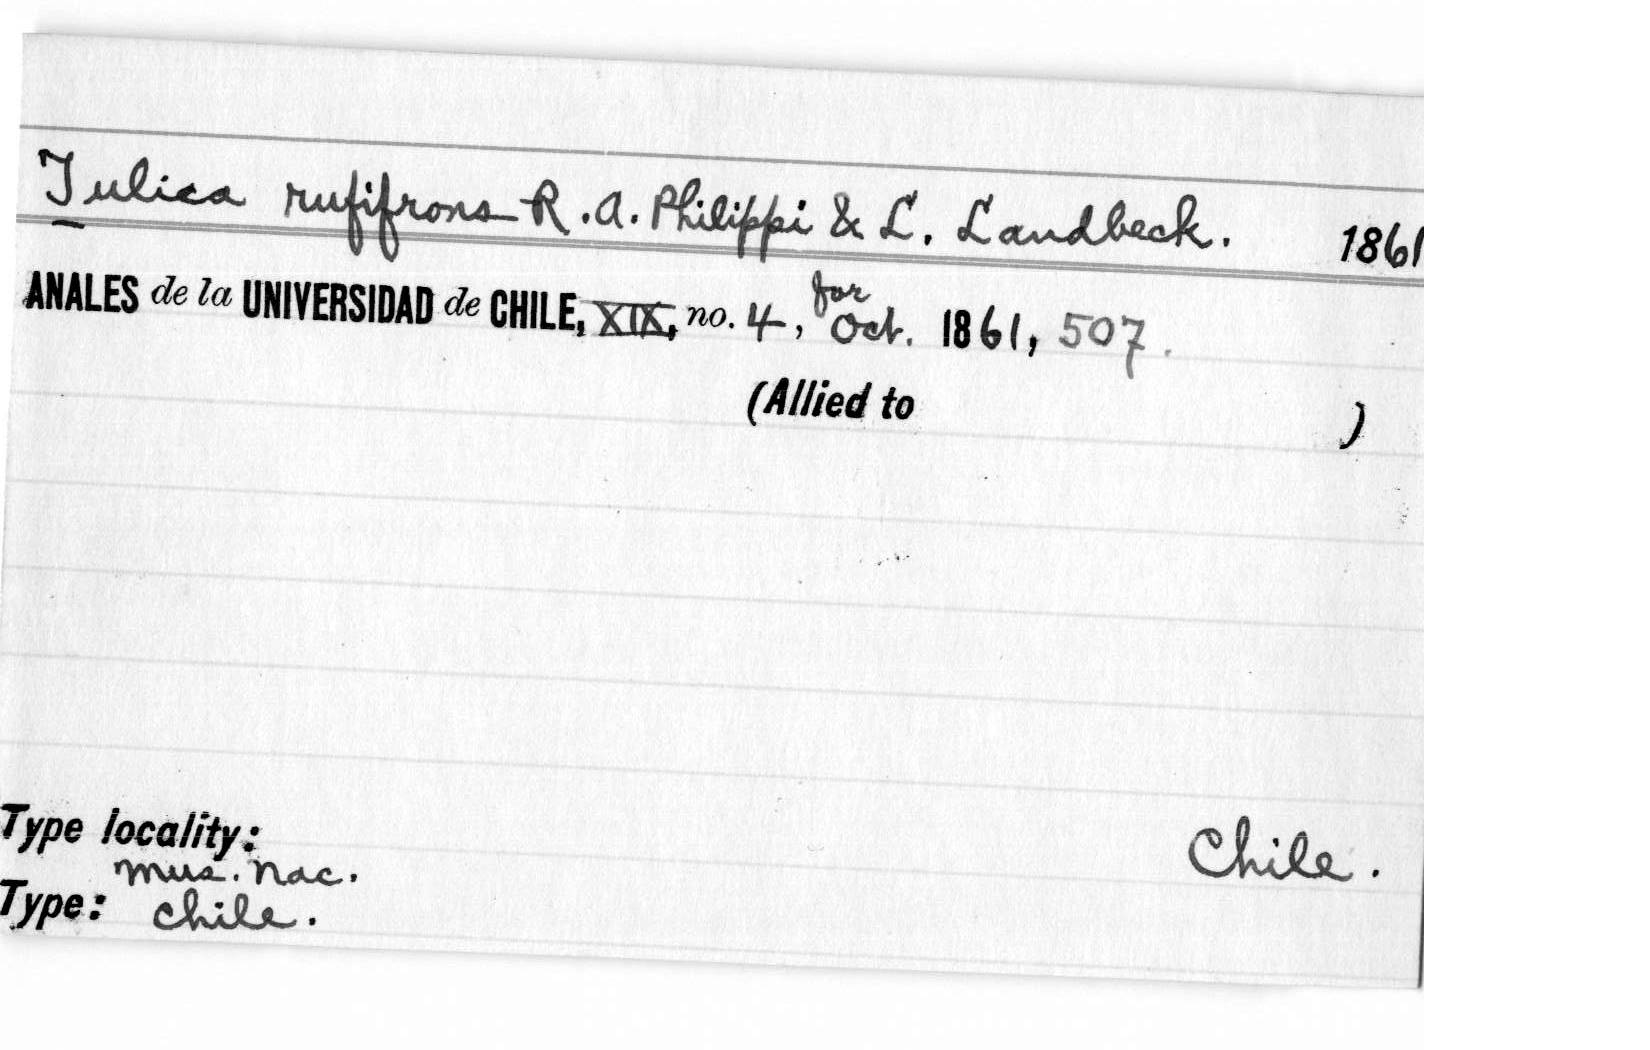 Fulica rufifrons R.A. Philippi & L. Landbeck. 1861
ANALES de la UNIVERSIDAD de CHILE, XIX, no. 4, for Oct. 1861, 507.
(Allied to )
Type locality: Chile.
Mus. Nac.
Type: Chile.